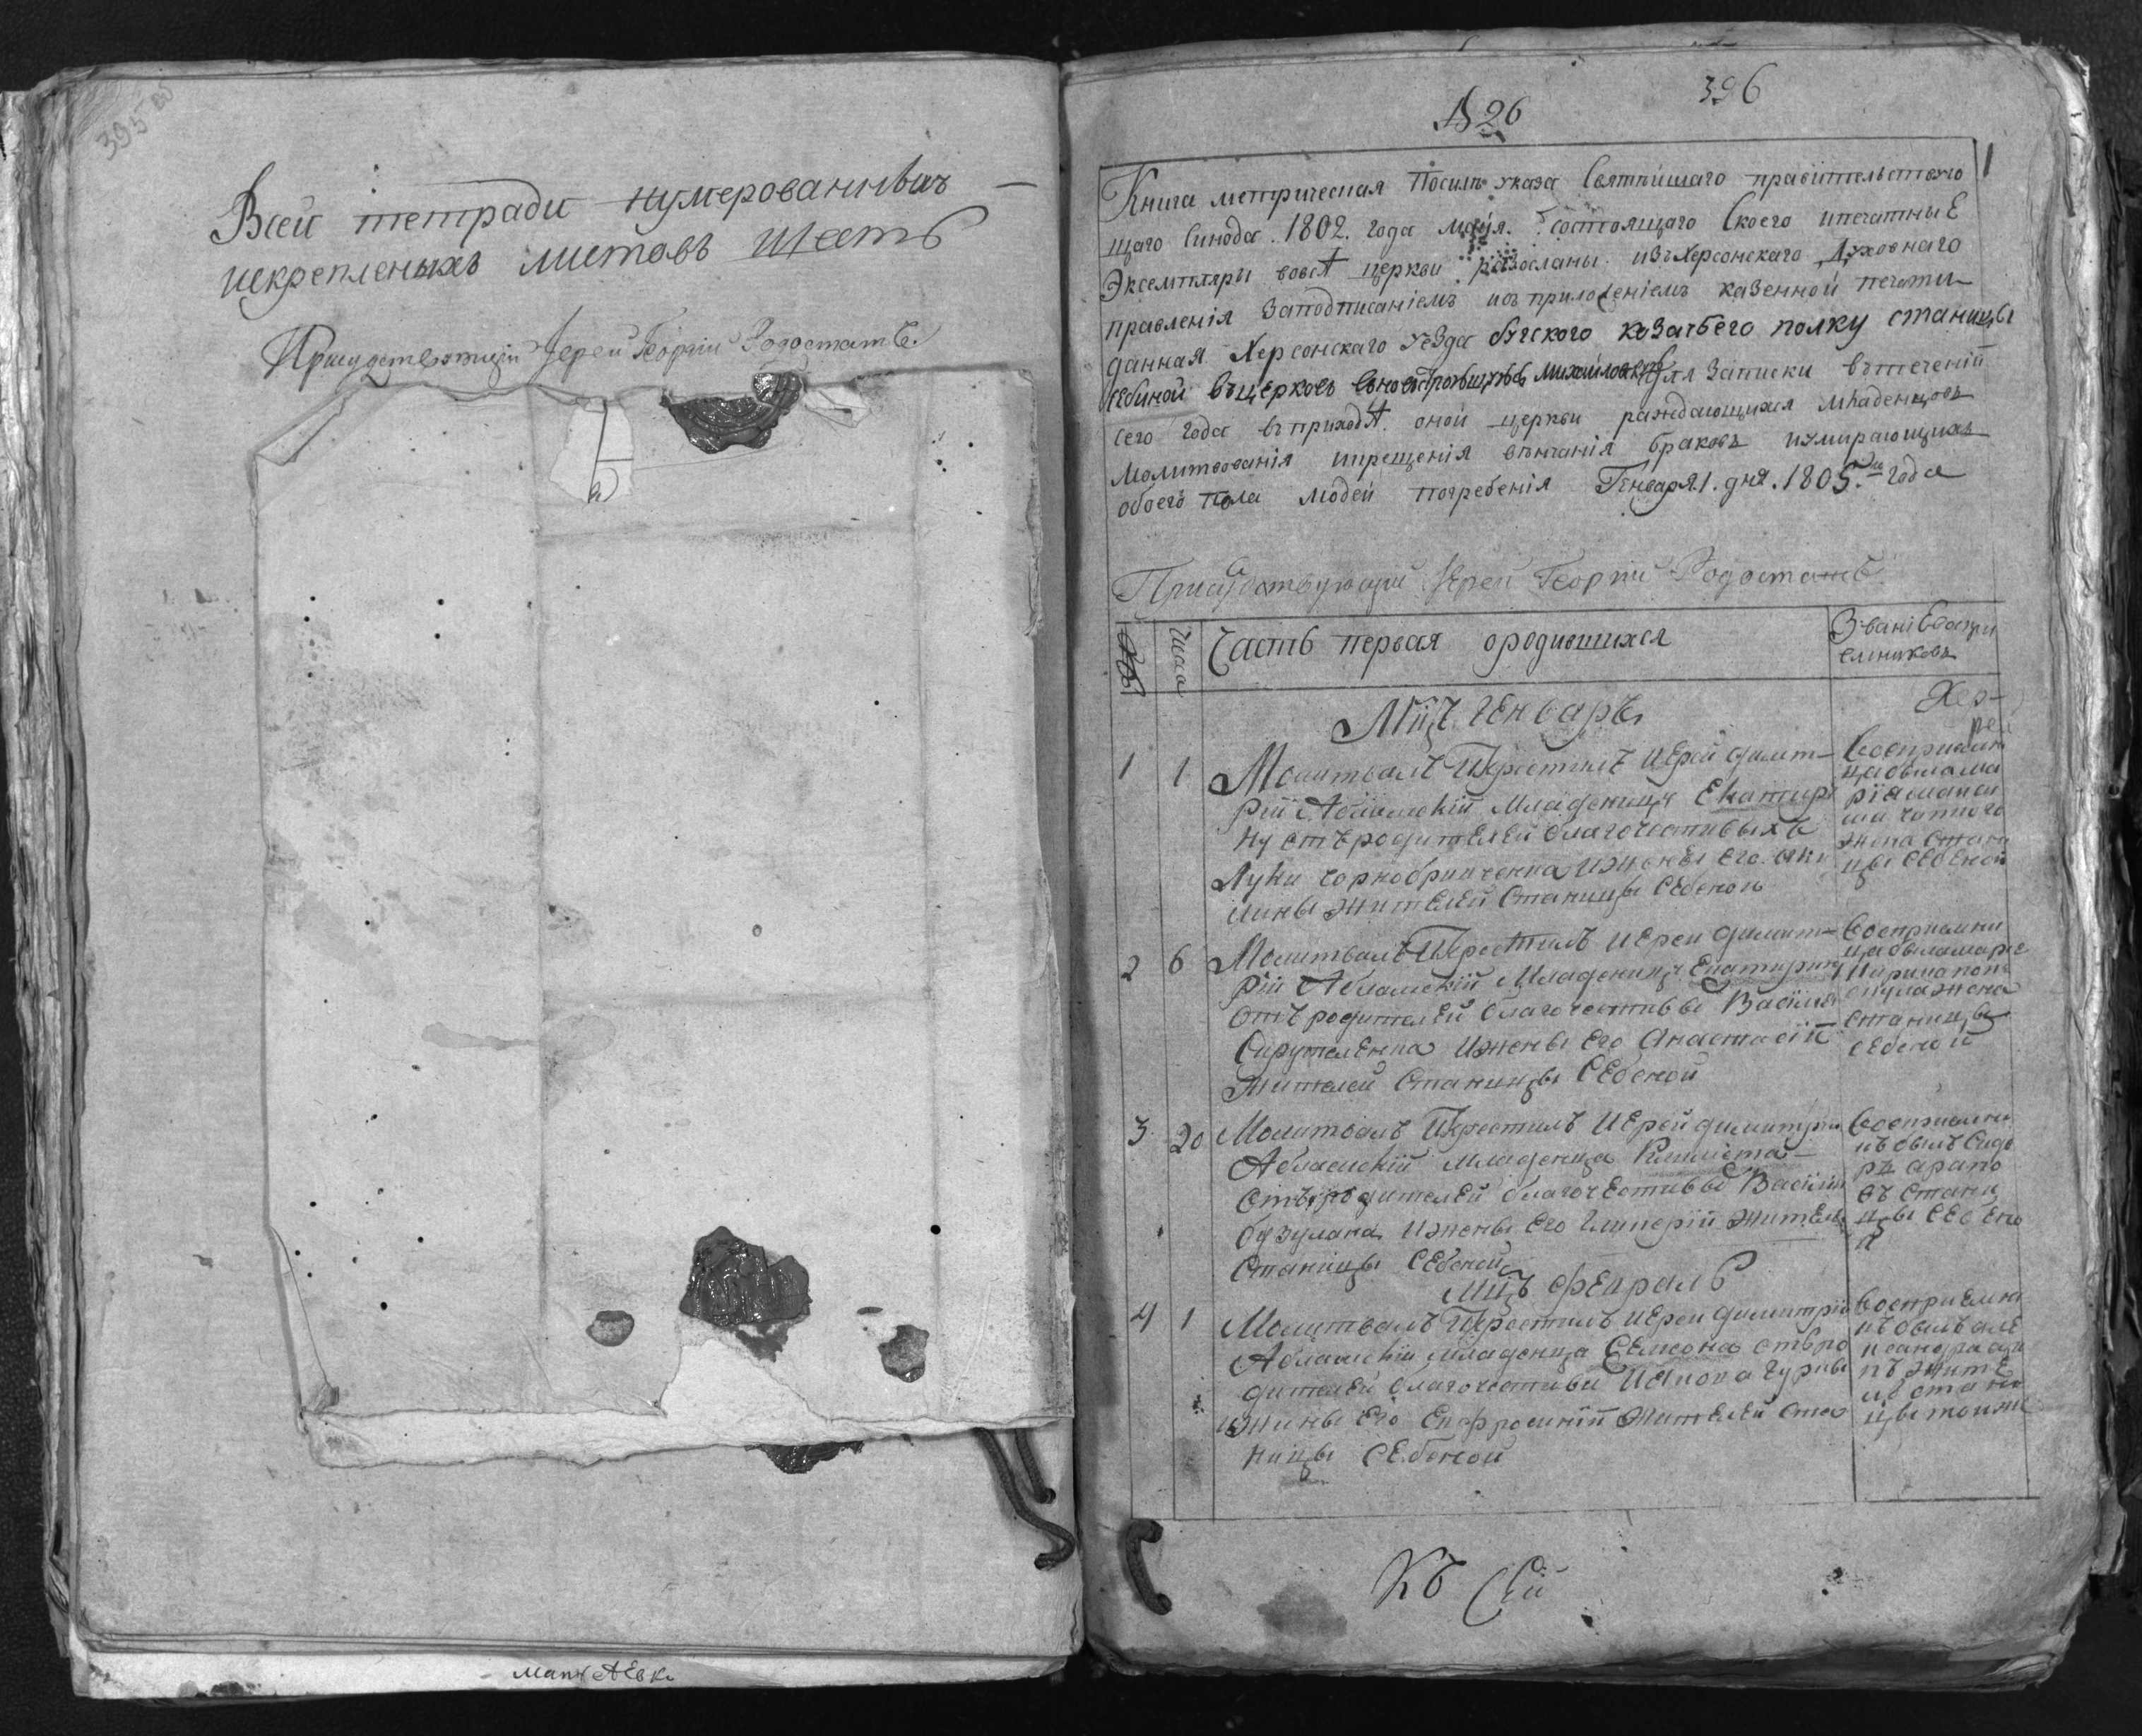 395 об
Всей тетради нумерованныхъ —
искрепленыхъ листовъ шесть
Присудствующій Іерей Георгій Родостатъ.
396
№ 26
1
Книга метрическая Посилѣ указа Святѣйшаго правительствую
щаго Синода 1802. года маія. состоящаго Скоего ипечатныѣ
Экземпляры вовсѣ церкви разосланы. изъ Херсонскаго Духовнаго
правленія Заподписаніемъ исъ приложеніемъ казенной печати
данная Херсонскаго уѣзда бугского козачьего полку станицы
себиной въцерковь Михайловскую для Записки втеченіи
сего года въприходѣ. оной церкви раждающихся младенцовъ
молитвованія икрещенія вѣнчанія браковъ иумирающихъ
обоего пола людей погребенія Генваря 1. дня. 1805.го года
Присудствующій Іерей Георгій Родостатъ
Числа
Часть первая ородившихся
Званіѣ воспри
емниковъ
Мцъ Генварь
1 1 Молитвалъ Икрестилъ иерей Димит–
рій Абламскій Младеницу Екатири
ну отъ родителей благочестивыхъ
Луки Чорнобривченка ижены Его аки
лины жителей Станицы Себеной
Восприемни
ца была ма
рія
жена стани
цы Себеной
2 6 Молитвалъ Икрестилъ иерей Димит–
рій Абламскій Младеницу Екатирину
отъ родителей благочестивы Василія
ижены Его Анастасіи
жителей Станицы Себеной
Восприемни
ца была
жена
станицы
себеной
3 20 Молитвалъ Икрестилъ иерей Димитрій
Абламскій младенца
отъ родителей благочестивы Василія
бузулана ижены Его Гликерій жителей
Станицы Себеной
Восприемни
къ былъ Сидо
ръ арапо
въ стани
цы Себено
й
Мцъ февраль
4 1 Молитвалъ Икрестилъ иерей Димитрій
Абламскій младенца Семеона отъро
дителей благочестивы
ижины Его Евфросиній жителей ста
ницы Себеной
Восприемни
къ былъ але
ксандра
къ жите
ль стани
цы тояж
Къ Сей